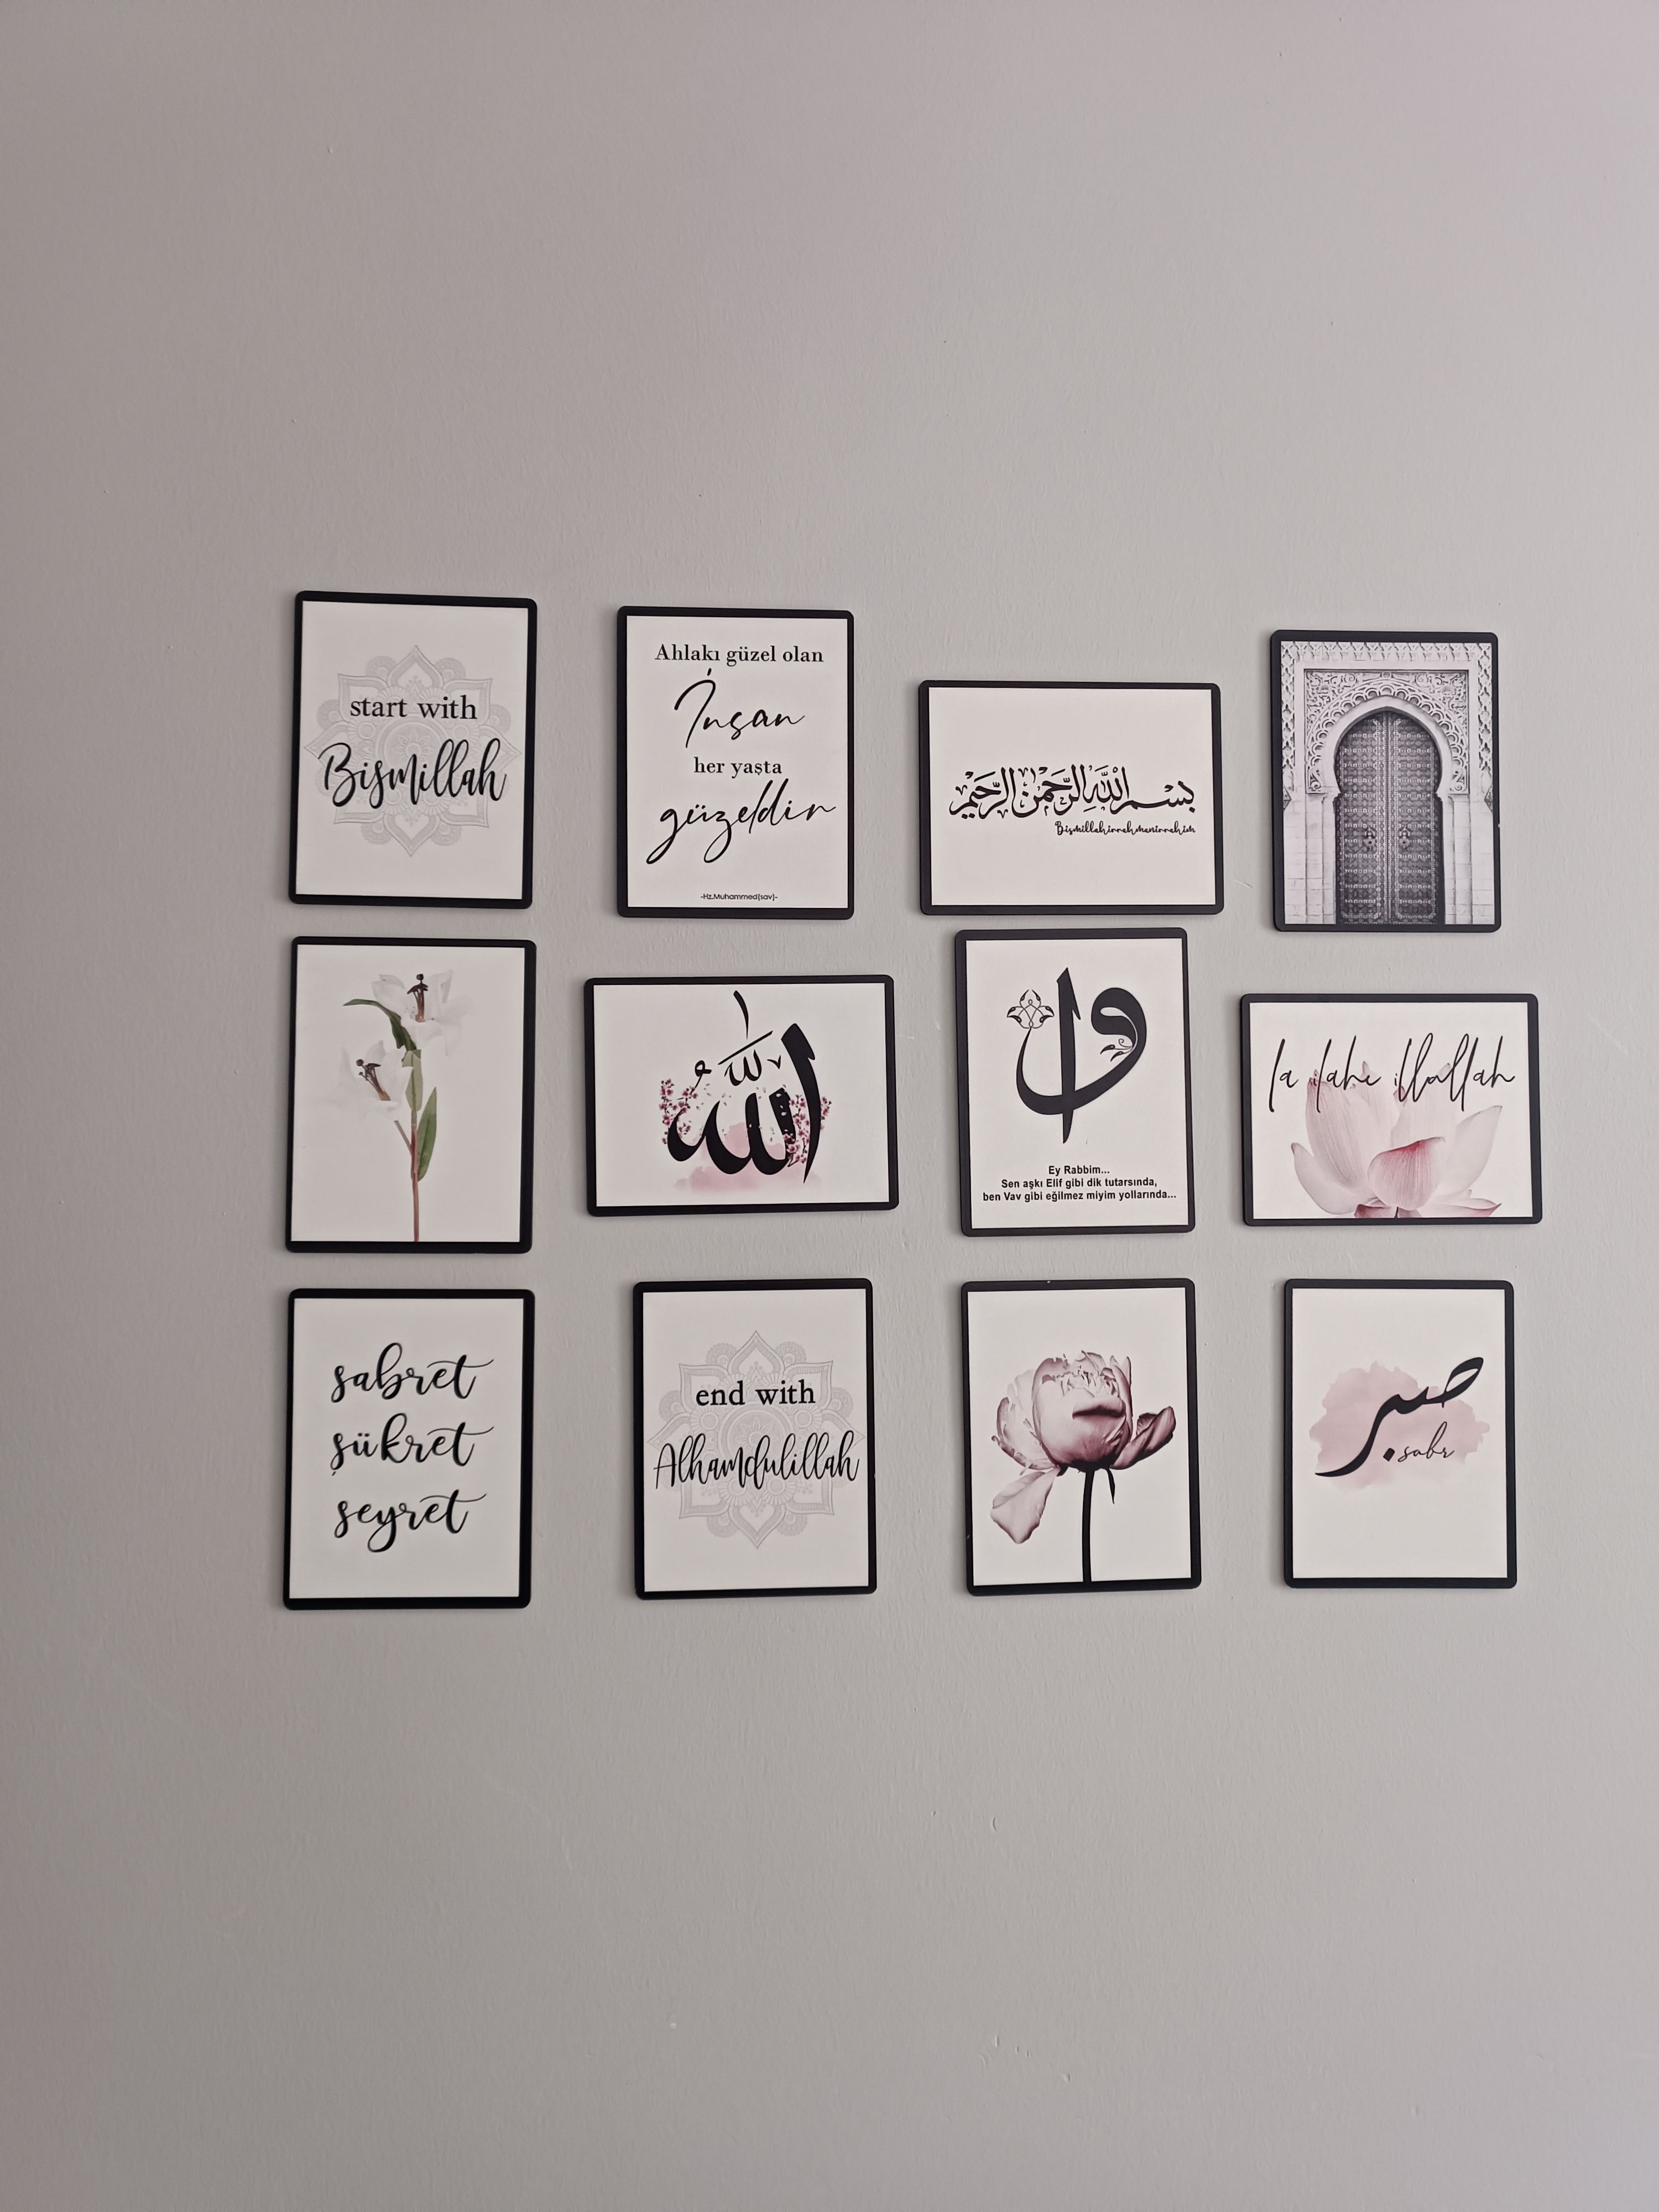 start with
Bismillah
Ahlakı güzel olan
İnsan
her yaşta
güzeldir
-Hz.Muhammed(sav)-
بِسْمِ اللَّهِ الرَّحْمَنِ الرَّحِيمِ
Bismillahirrahmanirrahim
الله
وا
Ey Rabbim...
Sen aşkı Elif gibi dik tutarsında,
ben Vav gibi eğilmez miyim yollarında...
la ilahe illallah
sabret
şükret
seyret
end with
Alhamdulillah
صبر
sabr